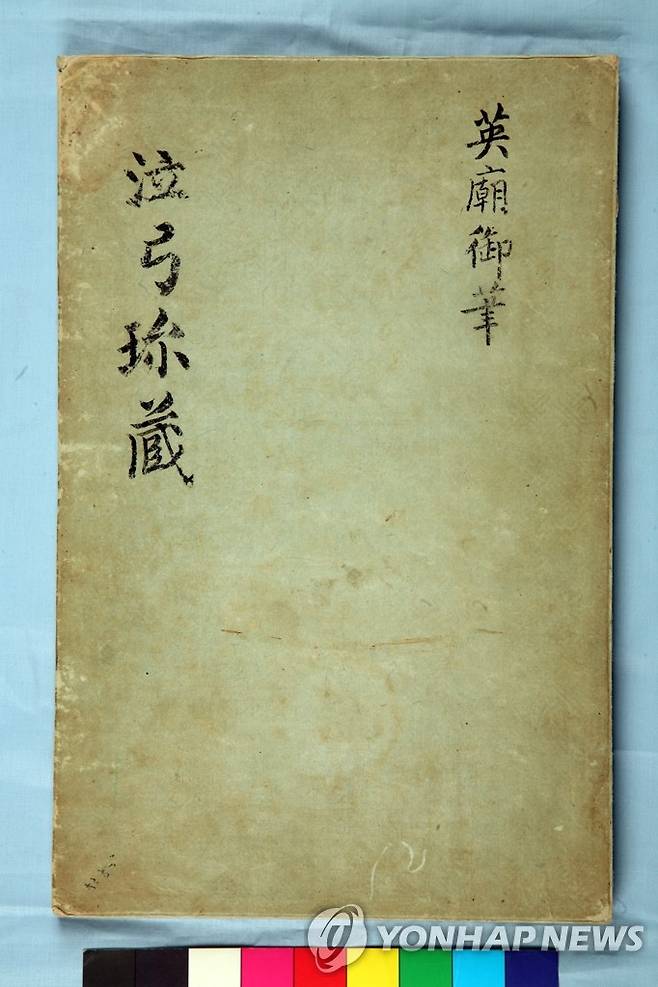 英廟御筆
泣弓珎蔵
YONHAP NEWS